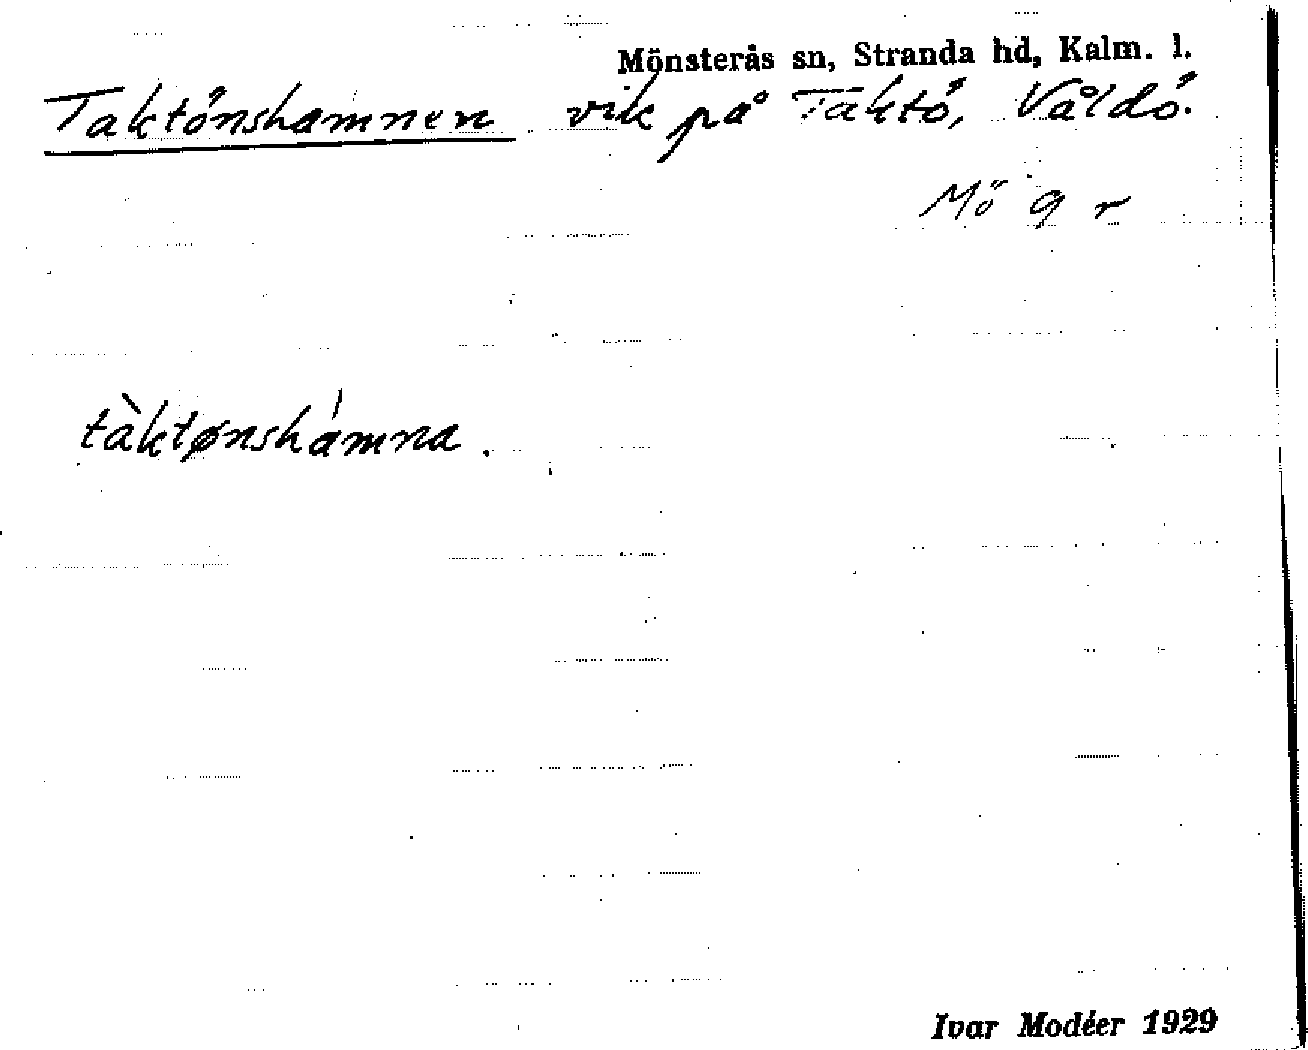 Mönsterås sn, Stranda hd, Kalm. l.
Taktönshamnen vik på Taktö, Våldö.
Mö 9 r
tàktønshámna.
Ivar Modéer 1929